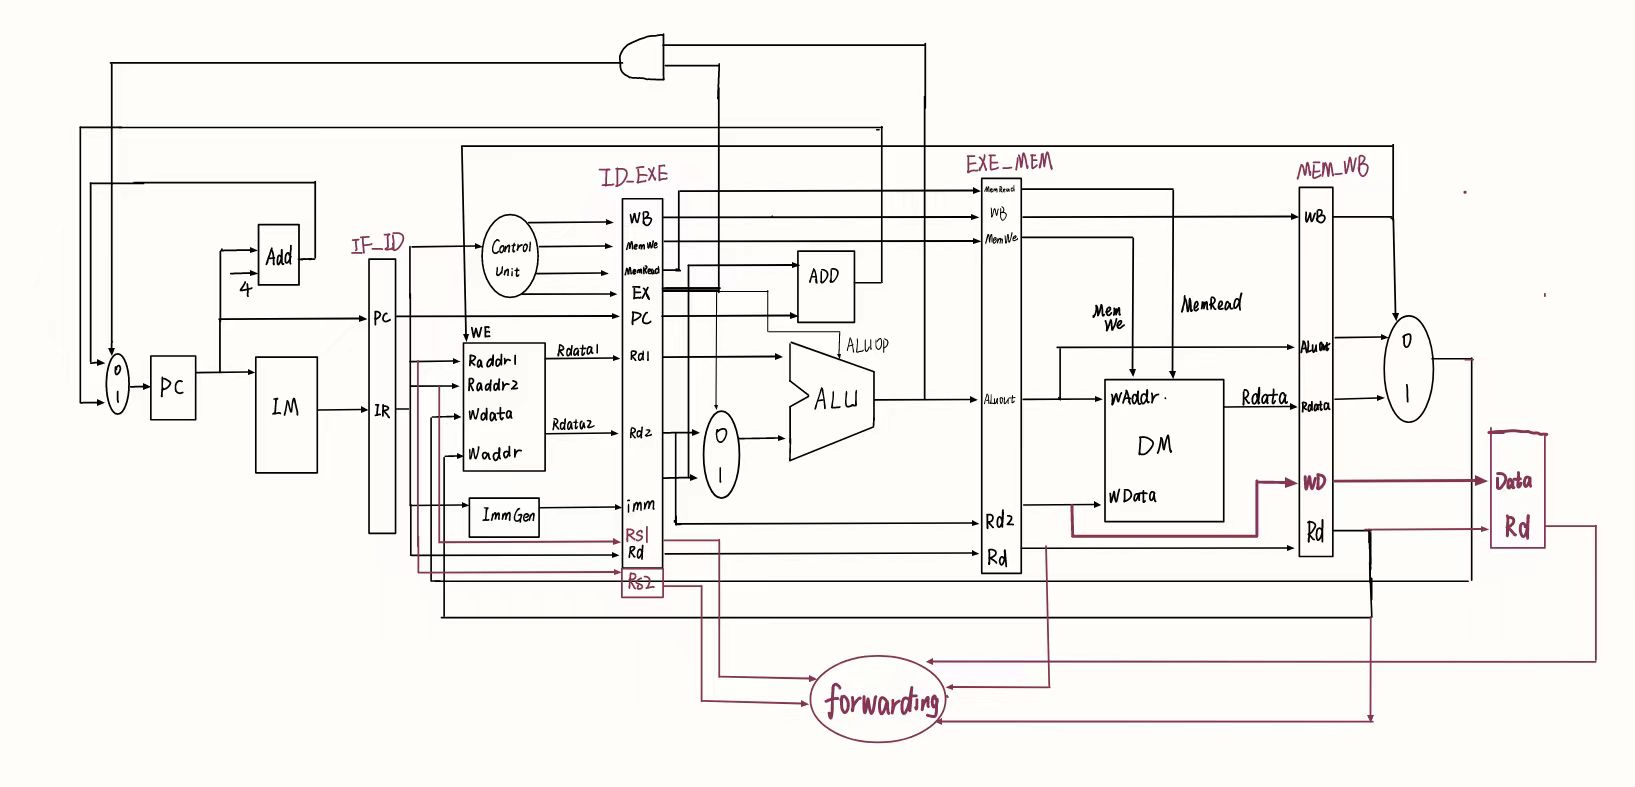 EXE_MEM
MEM_WB
ID_EXE
IF_ID
Add
4
PC
IR
0
1
PC
IM
Control
Unit
WE
Raddr1
Raddr2
Wdata
Waddr
Rdata1
Rdata2
ImmGen
WB
MemWe
MemRead
EX
PC
Rd1
Rd2
imm
Rs1
Rd
Rs2
ADD
ALUOP
ALU
0
1
MemRead
WB
MemWe
ALUout
Rd2
Rd
Mem
We
MemRead
WAddr.
DM
WData
Rdata
WB
ALUout
Rdata
WD
Rd
0
1
Data
Rd
forwarding